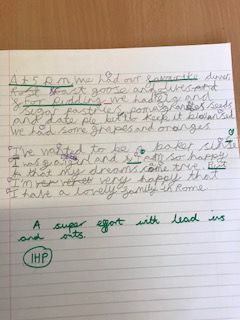 At 5 p.m we had our favourite diner,
Roast goose and olives and
for pudding we had fig and
sugar pastries, pomegranates seeds
and date pie but to keep it balanced
we had some grapes and oranges.
I've wanted to be a baker since
I was a girl and I am so happy
that my dreams come true
I'm very happy that
I have a lovely family in Rome.
A super effort with lead ins
and outs.
1HP